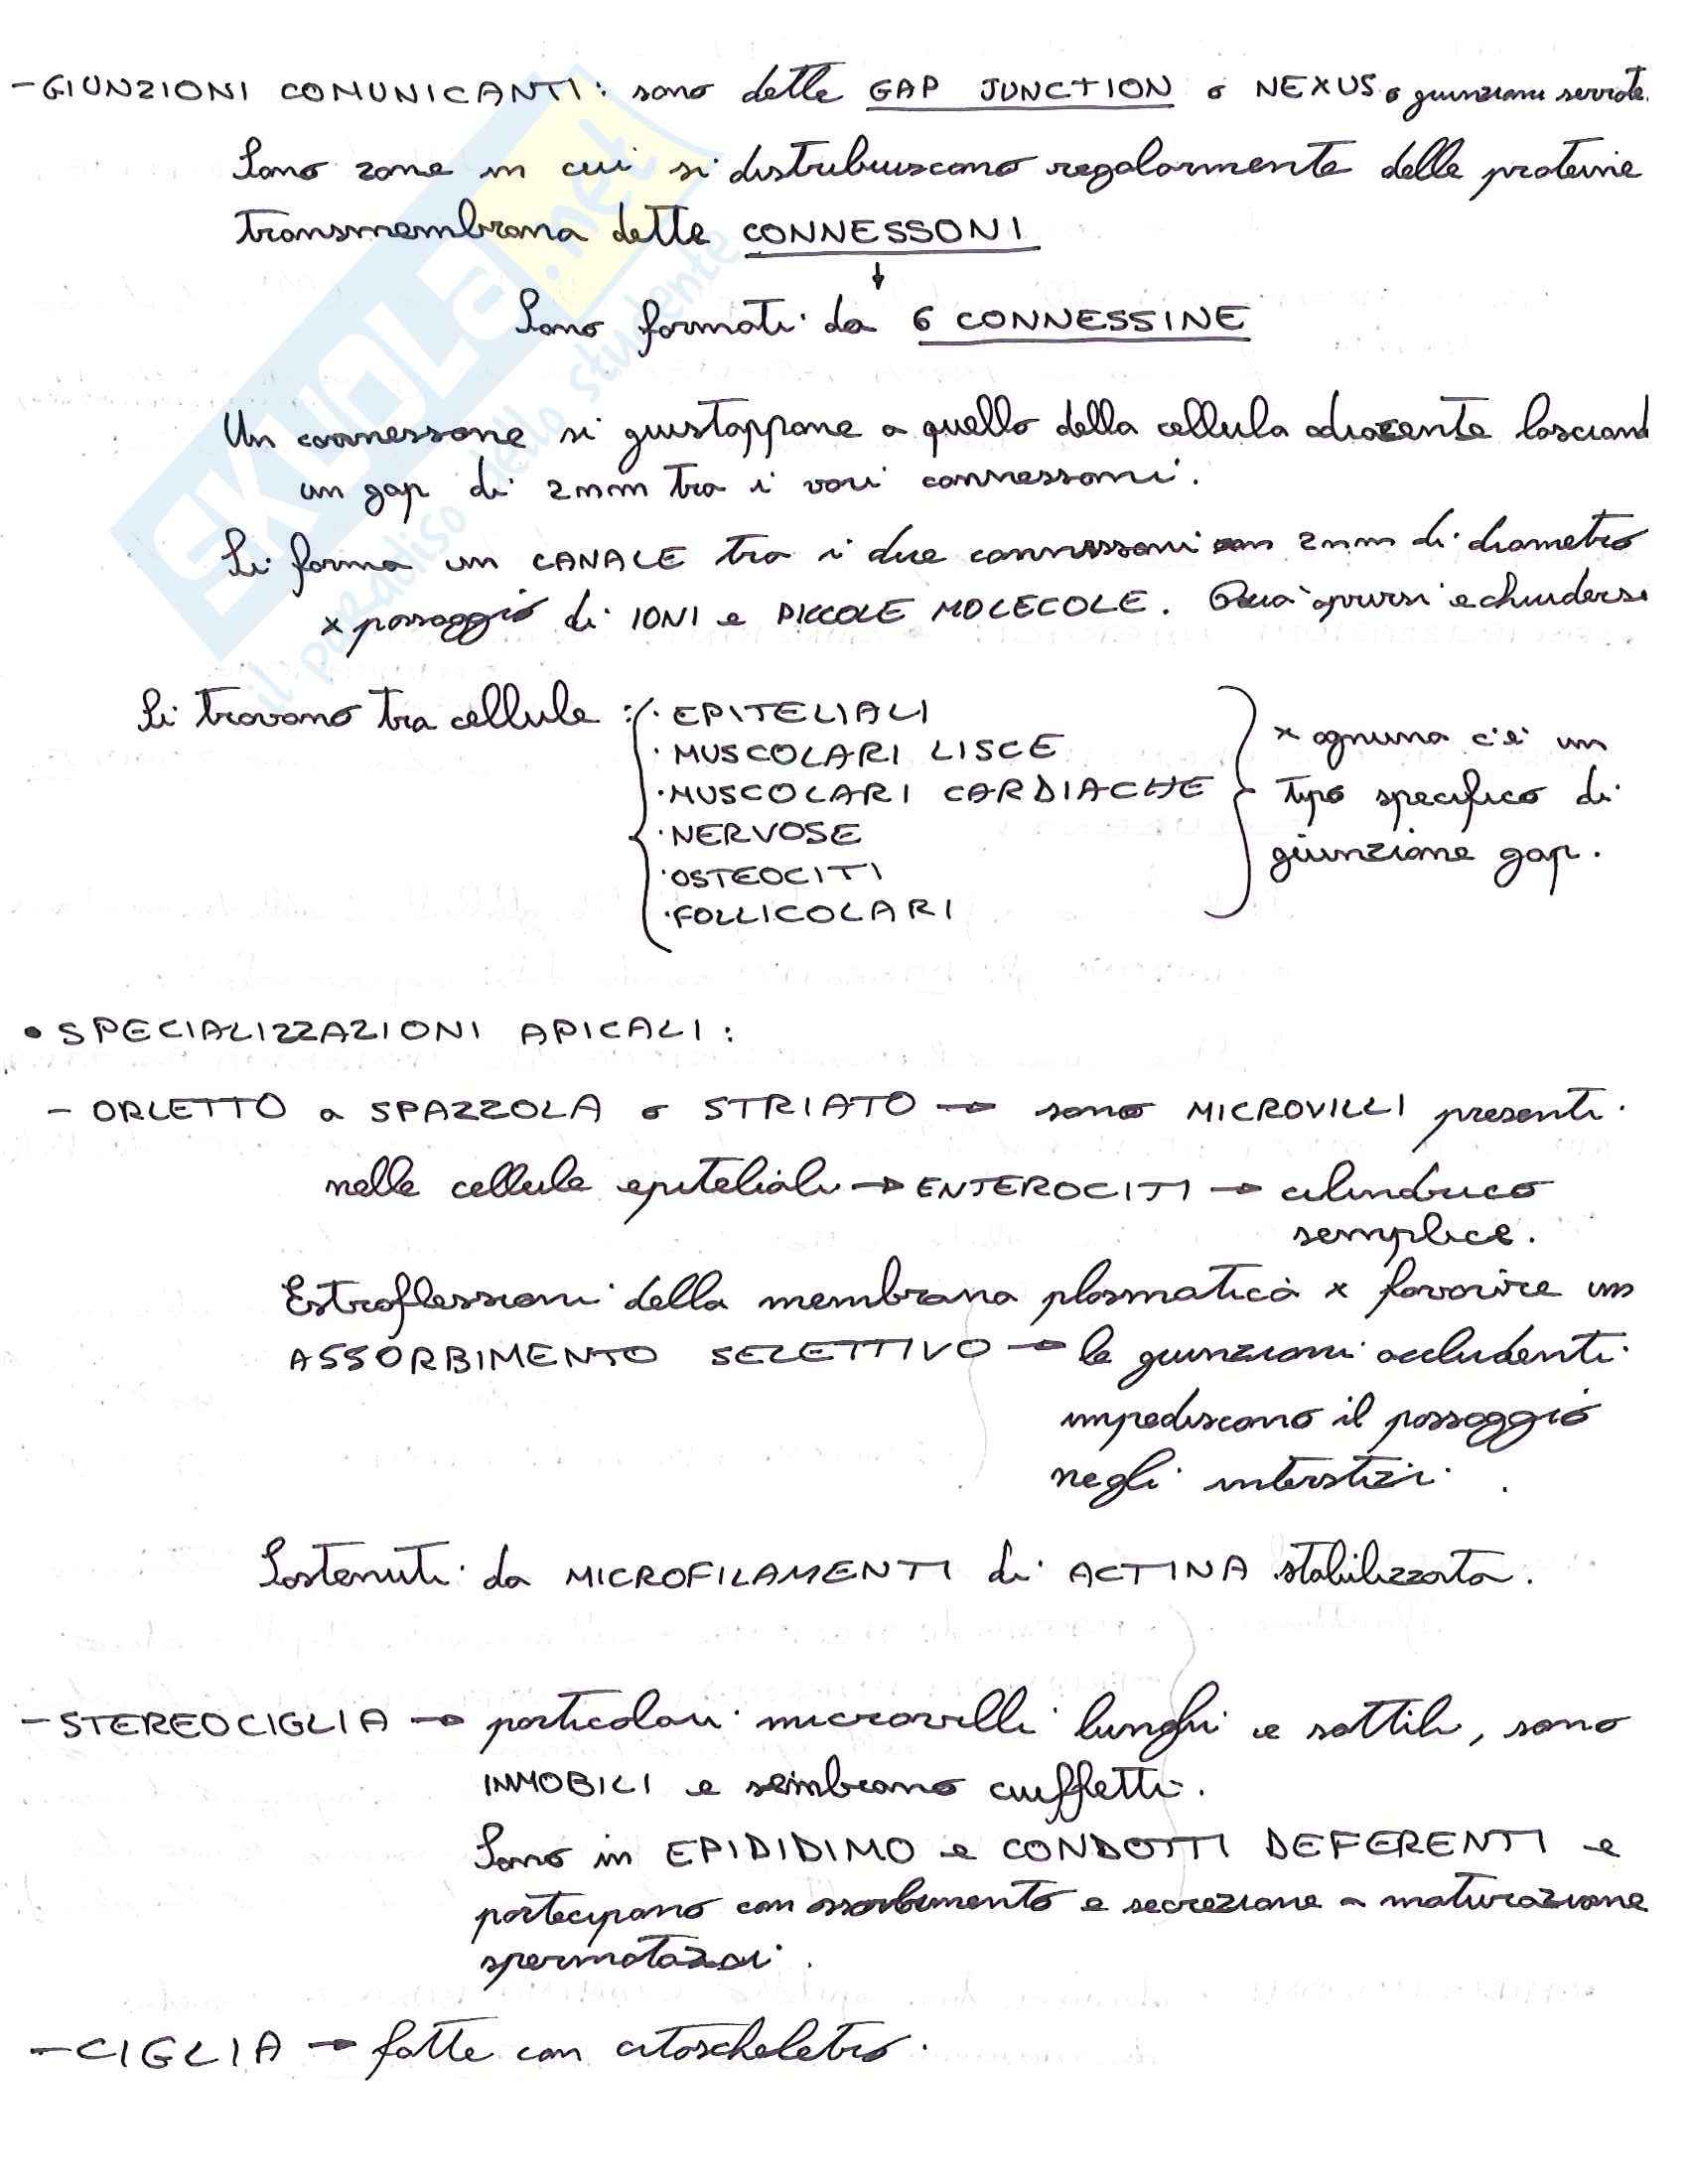 - GIUNZIONI COMUNICANTI: sono dette GAP JUNCTION o NEXUS o giunzioni serrate.
Sono zone in cui si distribuiscono regolarmente delle proteine
transmembrana dette CONNESSONI
↓
Sono formati da 6 CONNESSINE
Un connessone si giustappone a quello della cellula adiacente lasciand
un gap di 2nm tra i vari connessoni.
Si forma un CANALE tra i due connessoni con 2nm di diametro
x passaggio di IONI e PICCOLE MOLECOLE. Può aprirsi e chiudersi
Si trovano tra cellule :
· EPITELIALI
· MUSCOLARI LISCE
· MUSCOLARI CARDIACHE
· NERVOSE
· OSTEOCITI
· FOLLICOLARI
x ognuna c'è un
tipo specifico di
giunzione gap.
• SPECIALIZZAZIONI APICALI:
- ORLETTO a SPAZZOLA o STRIATO → sono MICROVILLI presenti
nelle cellule epiteliali → ENTEROCITI → cilindrico
semplice.
Estroflessioni della membrana plasmatica x favorire un
ASSORBIMENTO SELETTIVO → le giunzioni occludenti
impediscono il passaggio
negli interstizi.
Sostenuti da MICROFILAMENTI di ACTINA stabilizzata.
- STEREOCIGLIA → particolari microvilli lunghi e sottili, sono
IMMOBILI e sembrano ciuffetti.
Sono in EPIDIDIMO e CONDOTTI DEFERENTI e
partecipano con assorbimento e secrezione a maturazione
spermatozoi.
- CIGLIA → fatte con citoscheletro.
SKUOLA.net
il paradiso dello studente